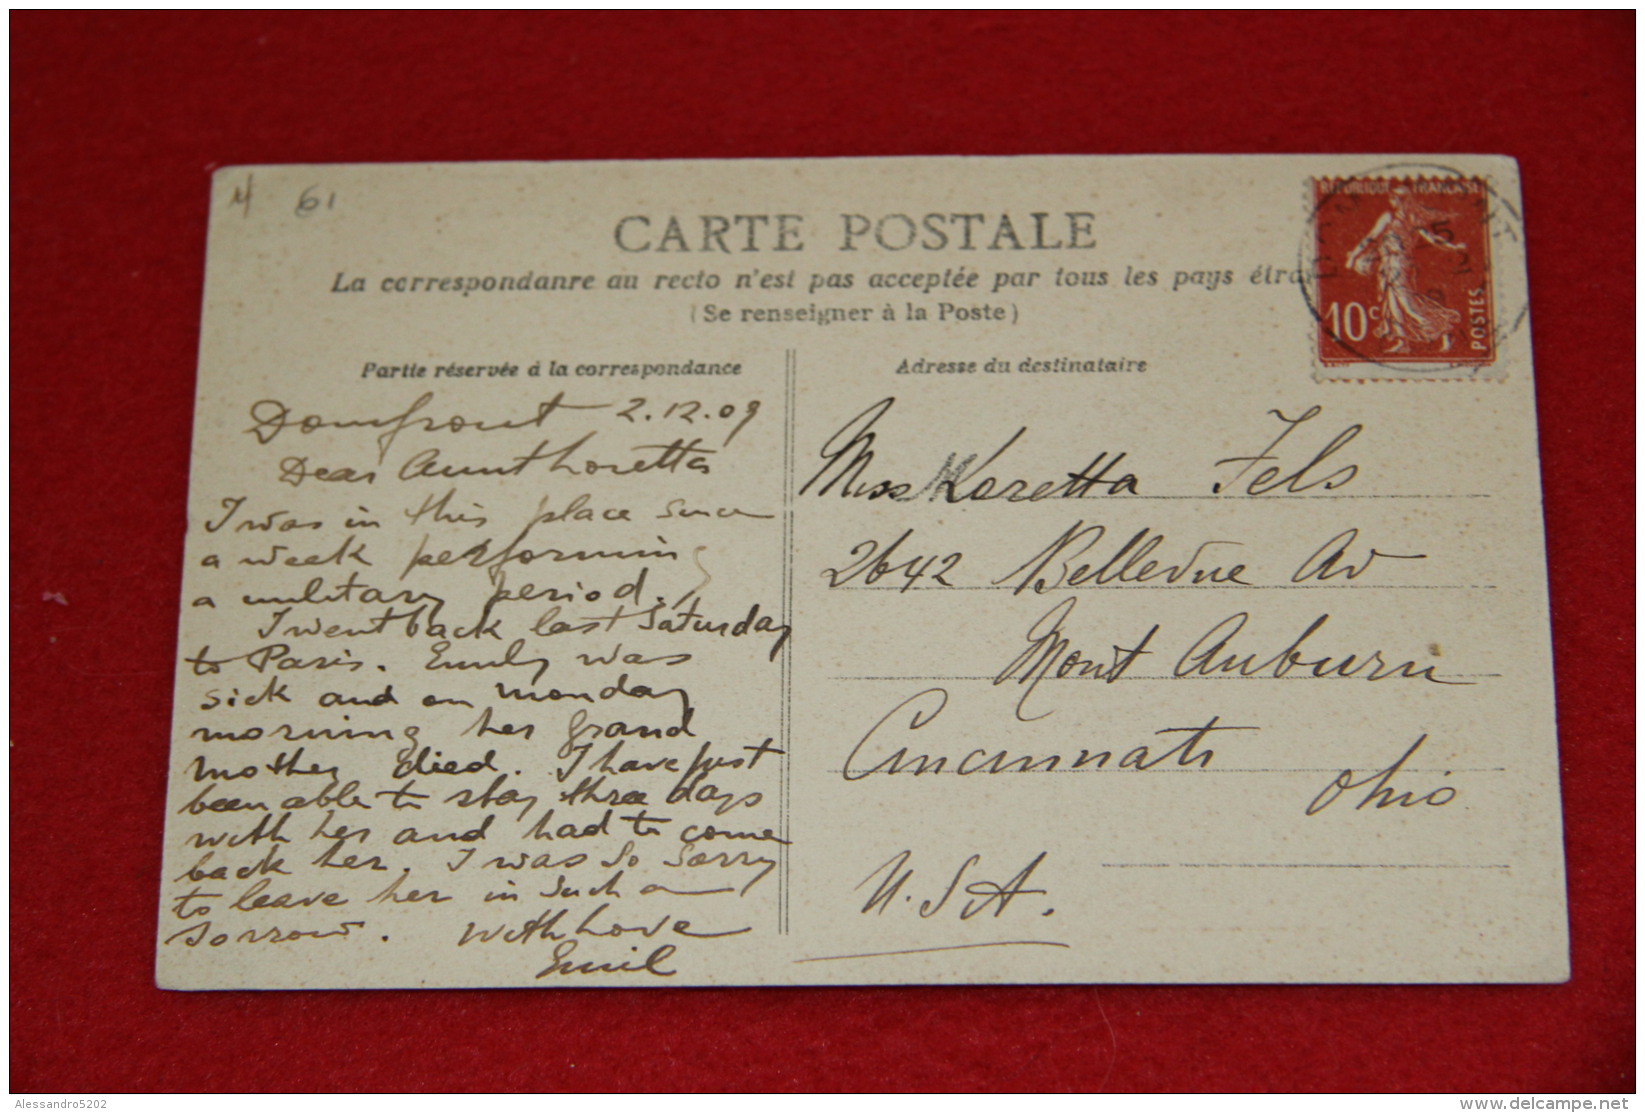 M 61
CARTE POSTALE
La correspondanre au recto n'est pas acceptée par tous les pays étra
(Se renseigner à la Poste)
RÉPUBLIQUE FRANÇAISE
10c POSTES
Partie réservée à la correspondance
Domfront 2.12.09
Dear Aunt Loretta
I was in this place since
a week performing
a military period.
I went back last Saturday
to Paris. Emily was
sick and on monday
morning her grand
mother died. I have just
been able to stay three days
with her and had to come
back her. I was so sorry
to leave her in such a
sorrow. With Love
Emil
Adresse du destinataire
Miss Loretta Fels
2642 Bellevue Av
Mont Auburn
Cincinnati
Ohio
U.S.A.
Alessandro5202
delcampe.net